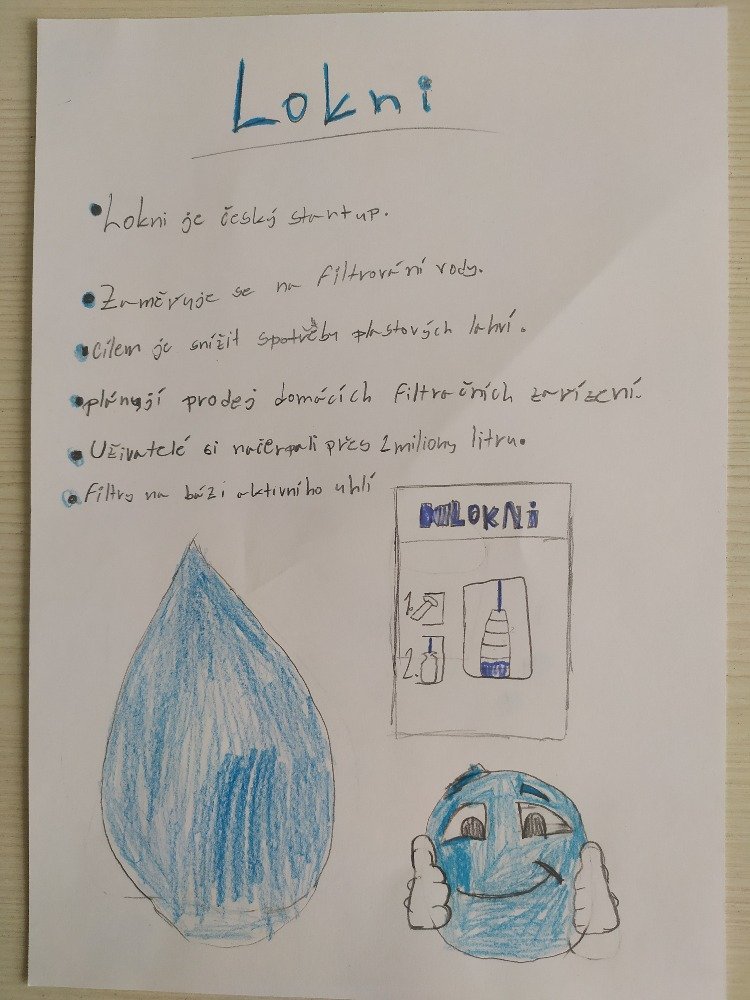 Lokni
Lokni je český startup.
Zaměřuje se na filtrování vody.
cílem je snížit spotřebu plastových lahví.
plánují prodej domácích filtračních zařízení.
Uživatelé si načerpali přes 2 miliony litru.
filtry na bázi aktivního uhlí
LOKNi
1.
2.